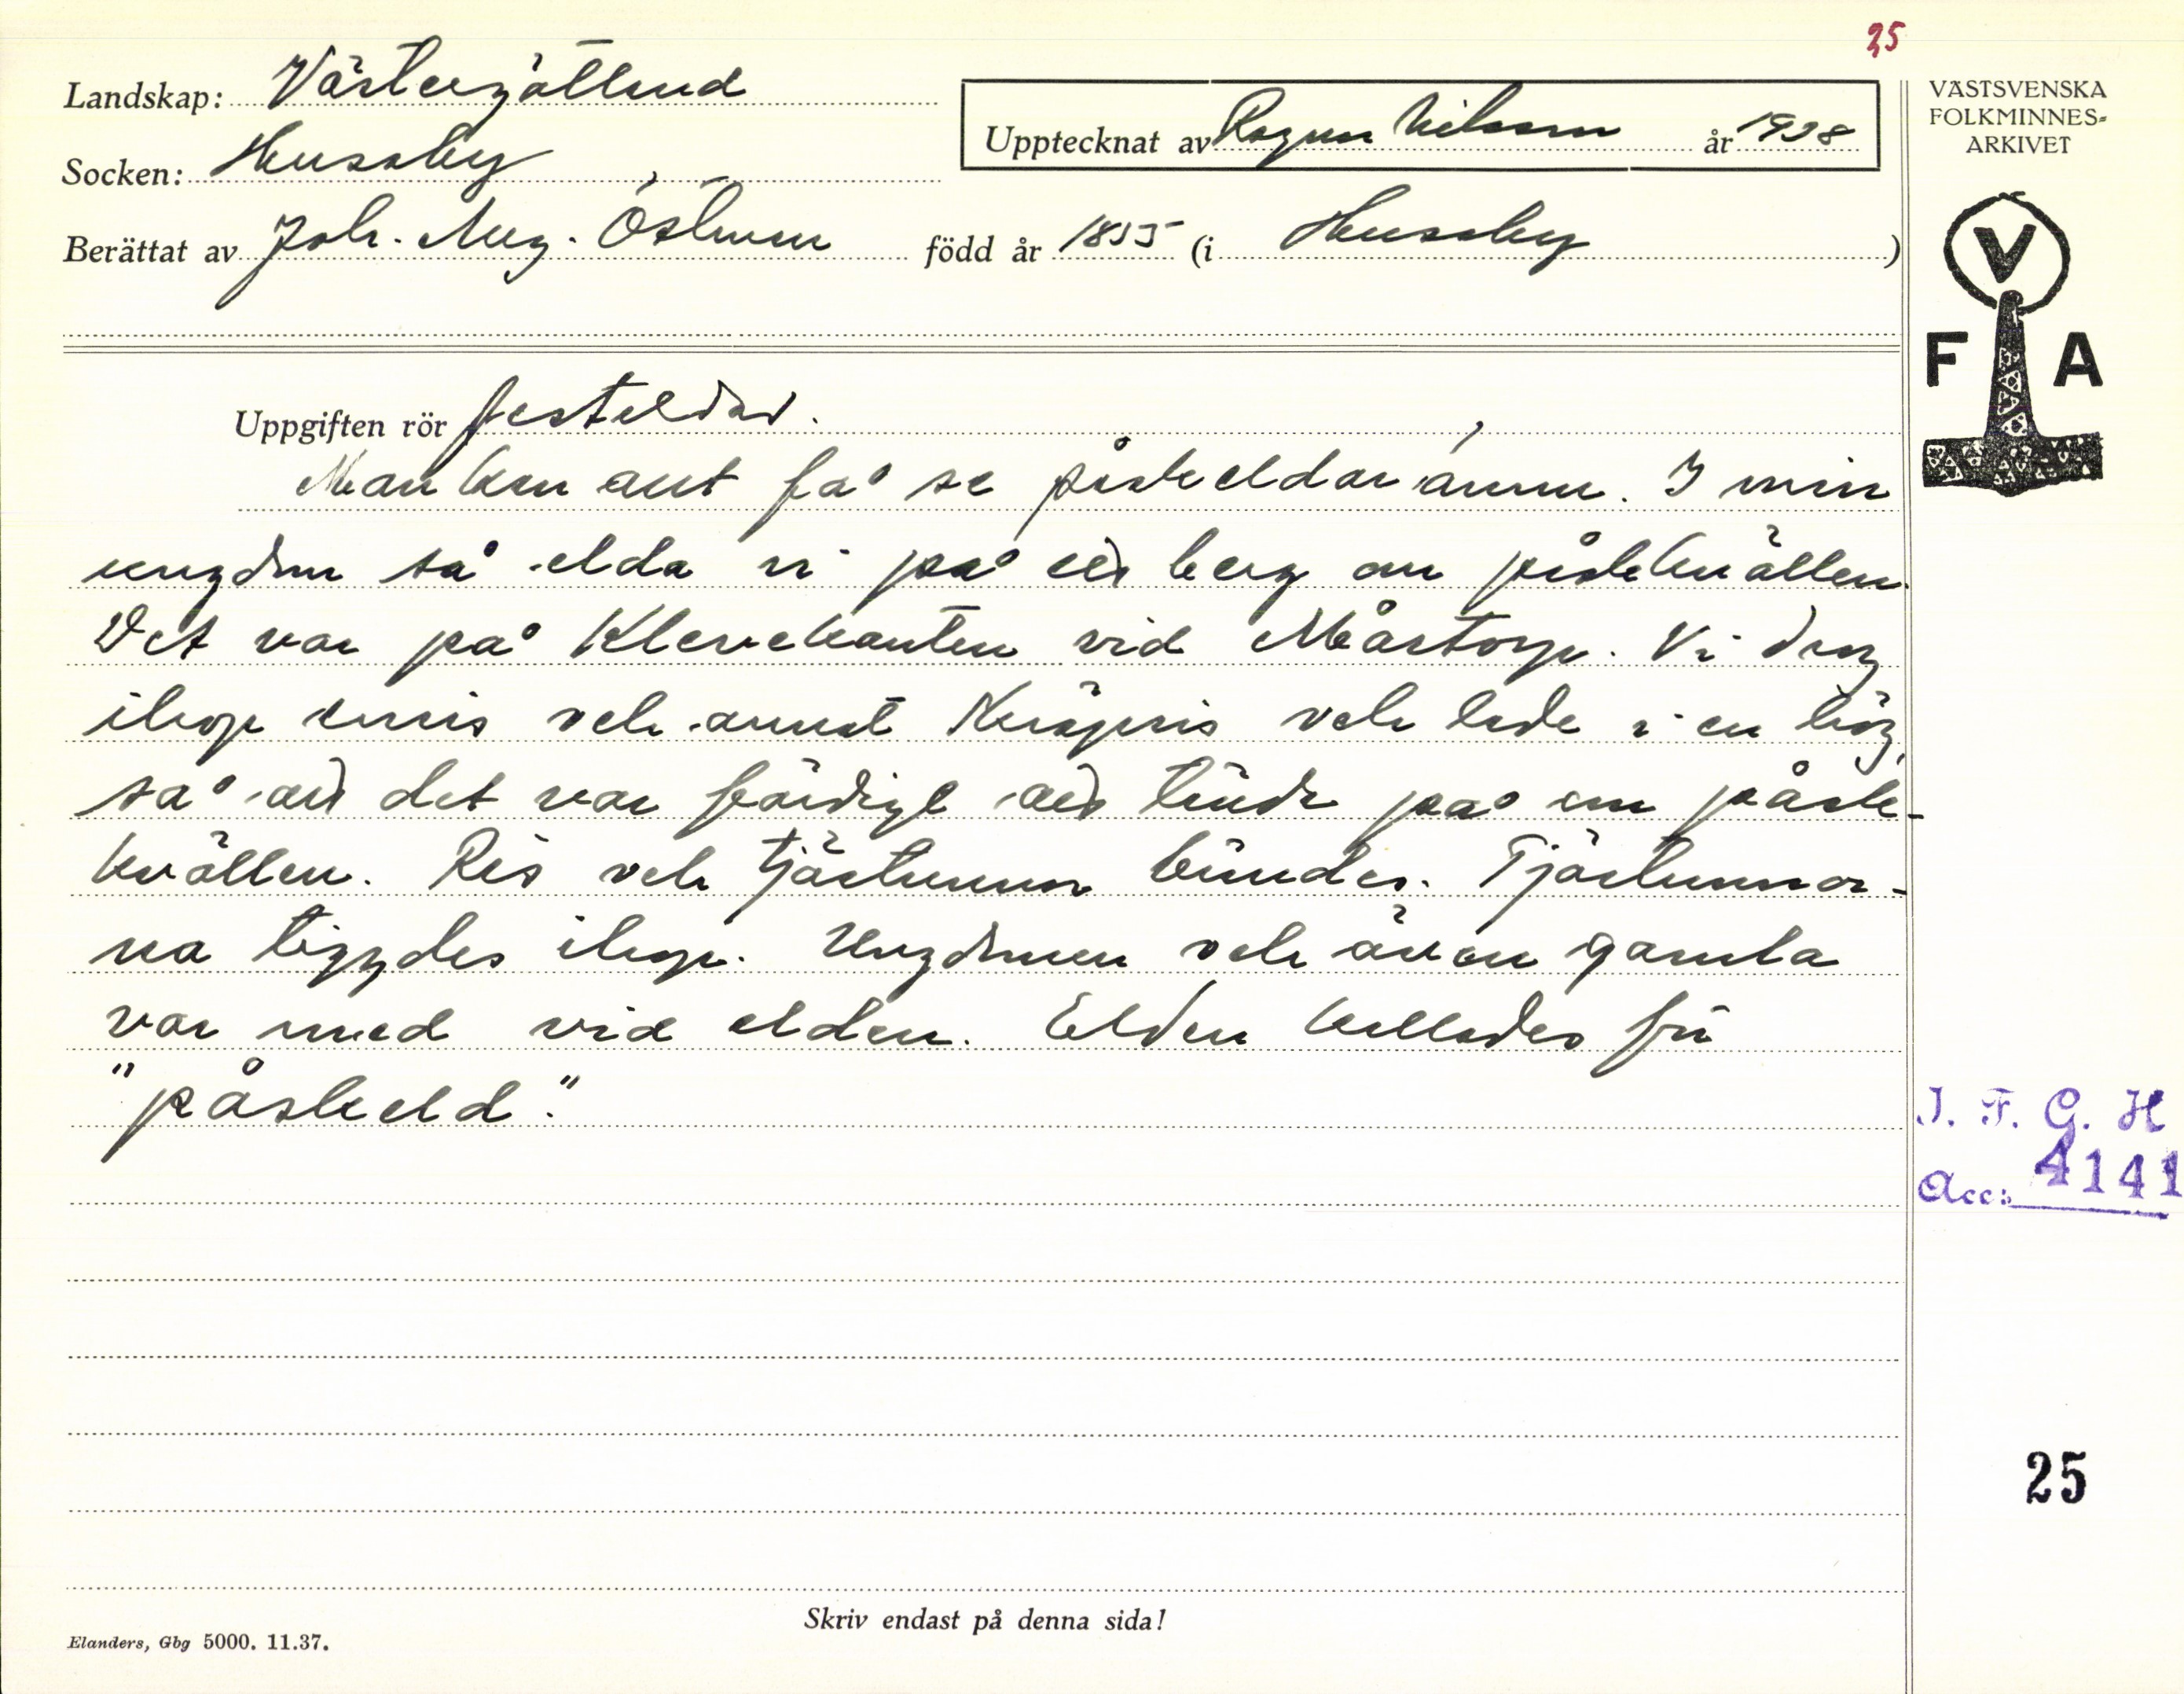 25
Landskap: Västergötland
Upptecknat av Ragnar Nilsson år 1938
VÄSTSVENSKA
FOLKMINNES-
ARKIVET
Socken: Husaby
Berättat av Joh. Aug. Östman född år 1855 (i Husaby )
V
F A
Uppgiften rör festeldar.
Man kan allt få se påskeldar ännu. I min
ungdom så elda vi på ett berg om påskkvällen.
Det var på Klevekanten vid Mårstorp. Vi drog
ihop enris och annat ris och lade i en hög
så att det var färdigt att tända på om påsk-
kvällen. Ris och tjärtunnor brändes. Tjärtunnor-
na tiggdes ihop. Ungdomen och även gamla
var med vid elden. Elden kallades för
"påskeld".
I. F. G. H
Acc: 4141
25
Skriv endast på denna sida!
Elanders, Gbg 5000. 11.37.